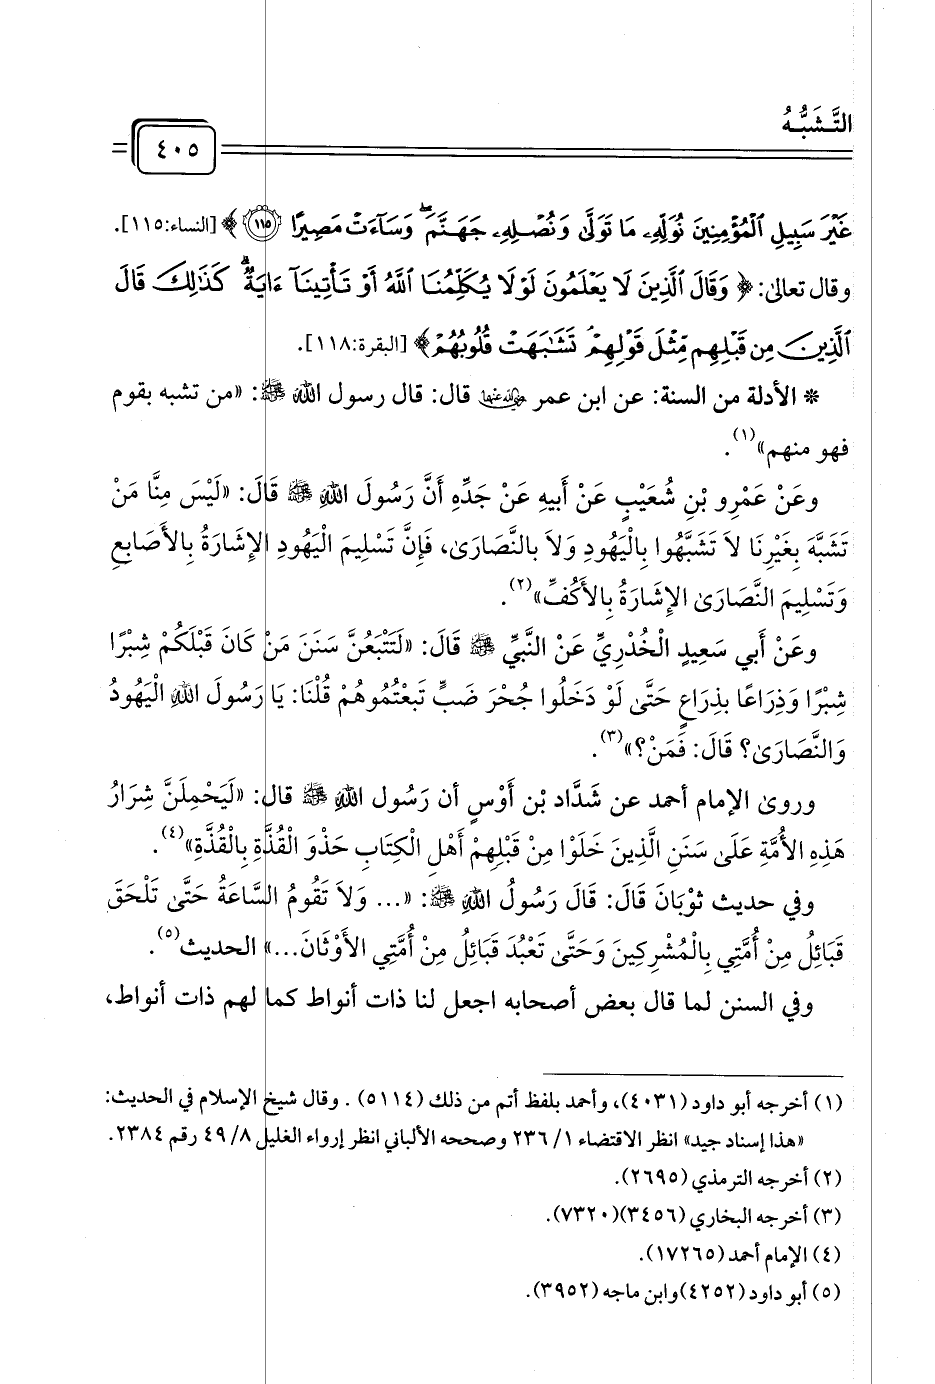 التَّشَبُّهُ
٤٠٥
غَيْرَ سَبِيلِ ٱلْمُؤْمِنِينَ نُوَلِّهِۦ مَا تَوَلَّىٰ وَنُصْلِهِۦ جَهَنَّمَ ۖ وَسَآءَتْ مَصِيرًا ﴿١١٥﴾ ﴾ [النساء:١١٥].
وقال تعالىٰ: ﴿ وَقَالَ ٱلَّذِينَ لَا يَعْلَمُونَ لَوْلَا يُكَلِّمُنَا ٱللَّهُ أَوْ تَأْتِينَآ ءَايَةٌ ۗ كَذَٰلِكَ قَالَ
ٱلَّذِينَ مِن قَبْلِهِم مِّثْلَ قَوْلِهِمْ ۘ تَشَٰبَهَتْ قُلُوبُهُمْ ﴾ [البقرة:١١٨].
❊ الأدلة من السنة: عن ابن عمر رضي الله عنهما قال: قال رسول الله ﷺ: «من تشبه بقوم
فهو منهم»(١).
وعَنْ عَمْرِو بْنِ شُعَيْبٍ عَنْ أَبيهِ عَنْ جَدِّهِ أَنَّ رَسُولَ اللهِ ﷺ قَالَ: «لَيْسَ مِنَّا مَنْ
تَشَبَّهَ بِغَيْرِنَا لاَ تَشَبَّهُوا بِالْيَهُودِ وَلاَ بالنَّصَارَىٰ، فَإِنَّ تَسْلِيمَ الْيَهُودِ الإِشَارَةُ بِالأَصَابعِ
وَتَسْلِيمَ النَّصَارَىٰ الإِشَارَةُ بِالأَكُفِّ»(٢).
وعَنْ أَبي سَعِيدٍ الْخُدْرِيِّ عَنْ النَّبيِّ ﷺ قَالَ: «لَتَتْبَعُنَّ سَنَنَ مَنْ كَانَ قَبْلَكُمْ شِبْرًا
شِبْرًا وَذِرَاعًا بذِرَاعٍ حَتَّىٰ لَوْ دَخَلُوا جُحْرَ ضَبٍّ تَبعْتُمُوهُمْ قُلْنَا: يَا رَسُولَ اللهِ الْيَهُودُ
وَالنَّصَارَىٰ؟ قَالَ: فَمَنْ؟»(٣).
وروىٰ الإمام أحمد عن شَدَّاد بْن أَوْسٍ أن رَسُول اللهِ ﷺ قال: «لَيَحْمِلَنَّ شِرَارُ
هَذِهِ الأُمَّةِ عَلَىٰ سَنَنِ الَّذِينَ خَلَوْا مِنْ قَبْلِهِمْ أَهْلِ الْكِتَابِ حَذْوَ الْقُذَّةِ بِالْقُذَّةِ»(٤).
وفي حديث ثوْبَانَ قَالَ: قَالَ رَسُولُ اللهِ ﷺ: «... وَلاَ تَقُومُ السَّاعَةُ حَتَّىٰ تَلْحَقَ
قَبَائِلُ مِنْ أُمَّتِي بِالْمُشْرِكِينَ وَحَتَّىٰ تَعْبُدَ قَبَائِلُ مِنْ أُمَّتِي الأَوْثَانَ...» الحديث(٥).
وفي السنن لما قال بعض أصحابه اجعل لنا ذات أنواط كما لهم ذات أنواط،
(١) أخرجه أبو داود (٤٠٣١)، وأحمد بلفظ أتم من ذلك (٥١١٤) . وقال شيخ الإسلام في الحديث:
«هذا إسناد جيد» انظر الاقتضاء ١/ ٢٣٦ وصححه الألباني انظر إرواء الغليل ٨/ ٤٩ رقم ٢٣٨٤.
(٢) أخرجه الترمذي (٢٦٩٥).
(٣) أخرجه البخاري (٣٤٥٦)(٧٣٢٠).
(٤) الإمام أحمد (١٧٢٦٥).
(٥) أبو داود (٤٢٥٢)وابن ماجه (٣٩٥٢).